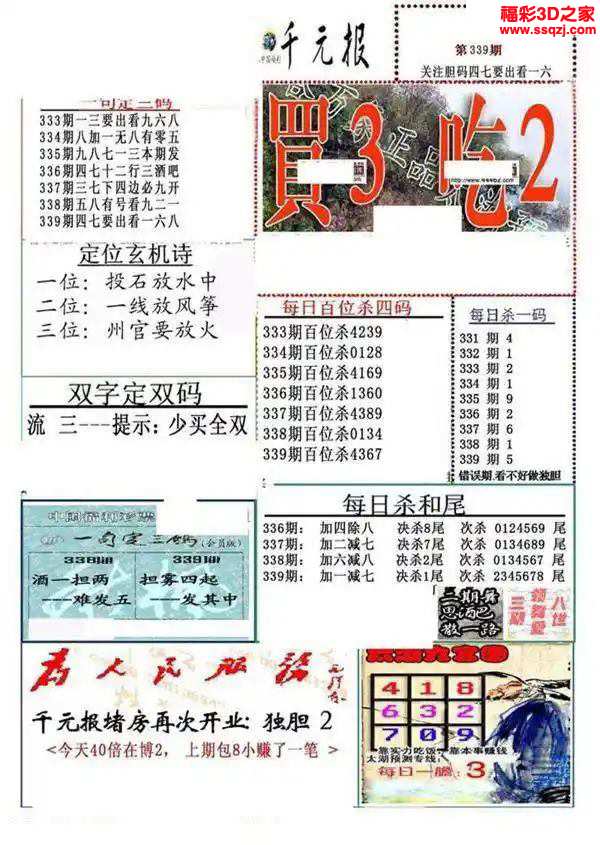 福彩3D之家
www.ssqzj.com
千元报
第339期
关注胆码四七要出看一六
一句定三码
333期一三要出看九六八
334期八加一无八有零五
335期九八七一三本期发
336期四七十二行三酒吧
337期三七下四边必九开
338期五八有号看九二一
339期四七要出看一六八
買3 吃2
定位玄机诗
一位：投石放水中
二位：一线放风筝
三位：州官要放火
每日百位杀四码
333期百位杀4239
334期百位杀0128
335期百位杀4169
336期百位杀1360
337期百位杀4389
338期百位杀0134
339期百位杀4367
每日杀一码
331 期 4
332 期 1
333 期 2
334 期 1
335 期 9
336 期 2
337 期 6
338 期 1
339 期 5
错误期.看不好做独胆
双字定双码
流 三---提示：少买全双
每日杀和尾
336期： 加四除八 决杀8尾 次杀 0124569 尾
337期： 加二减七 决杀7尾 次杀 0134689 尾
338期： 加六减八 决杀2尾 次杀 0134567 尾
339期： 加一减七 决杀1尾 次杀 2345678 尾
一句定三码(会员版)
338期 339期
酒一担两 担雾四起
---难发五 ---发其中
三期
为人民服务
千元报堵房再次开业：独胆 2
<今天40倍在博2， 上期包8小赚了一笔>
4 1 8
6 3 2
7 0 9
靠实力吃饭,靠本事赚钱
太湖预测专线:
每日一胆: 3